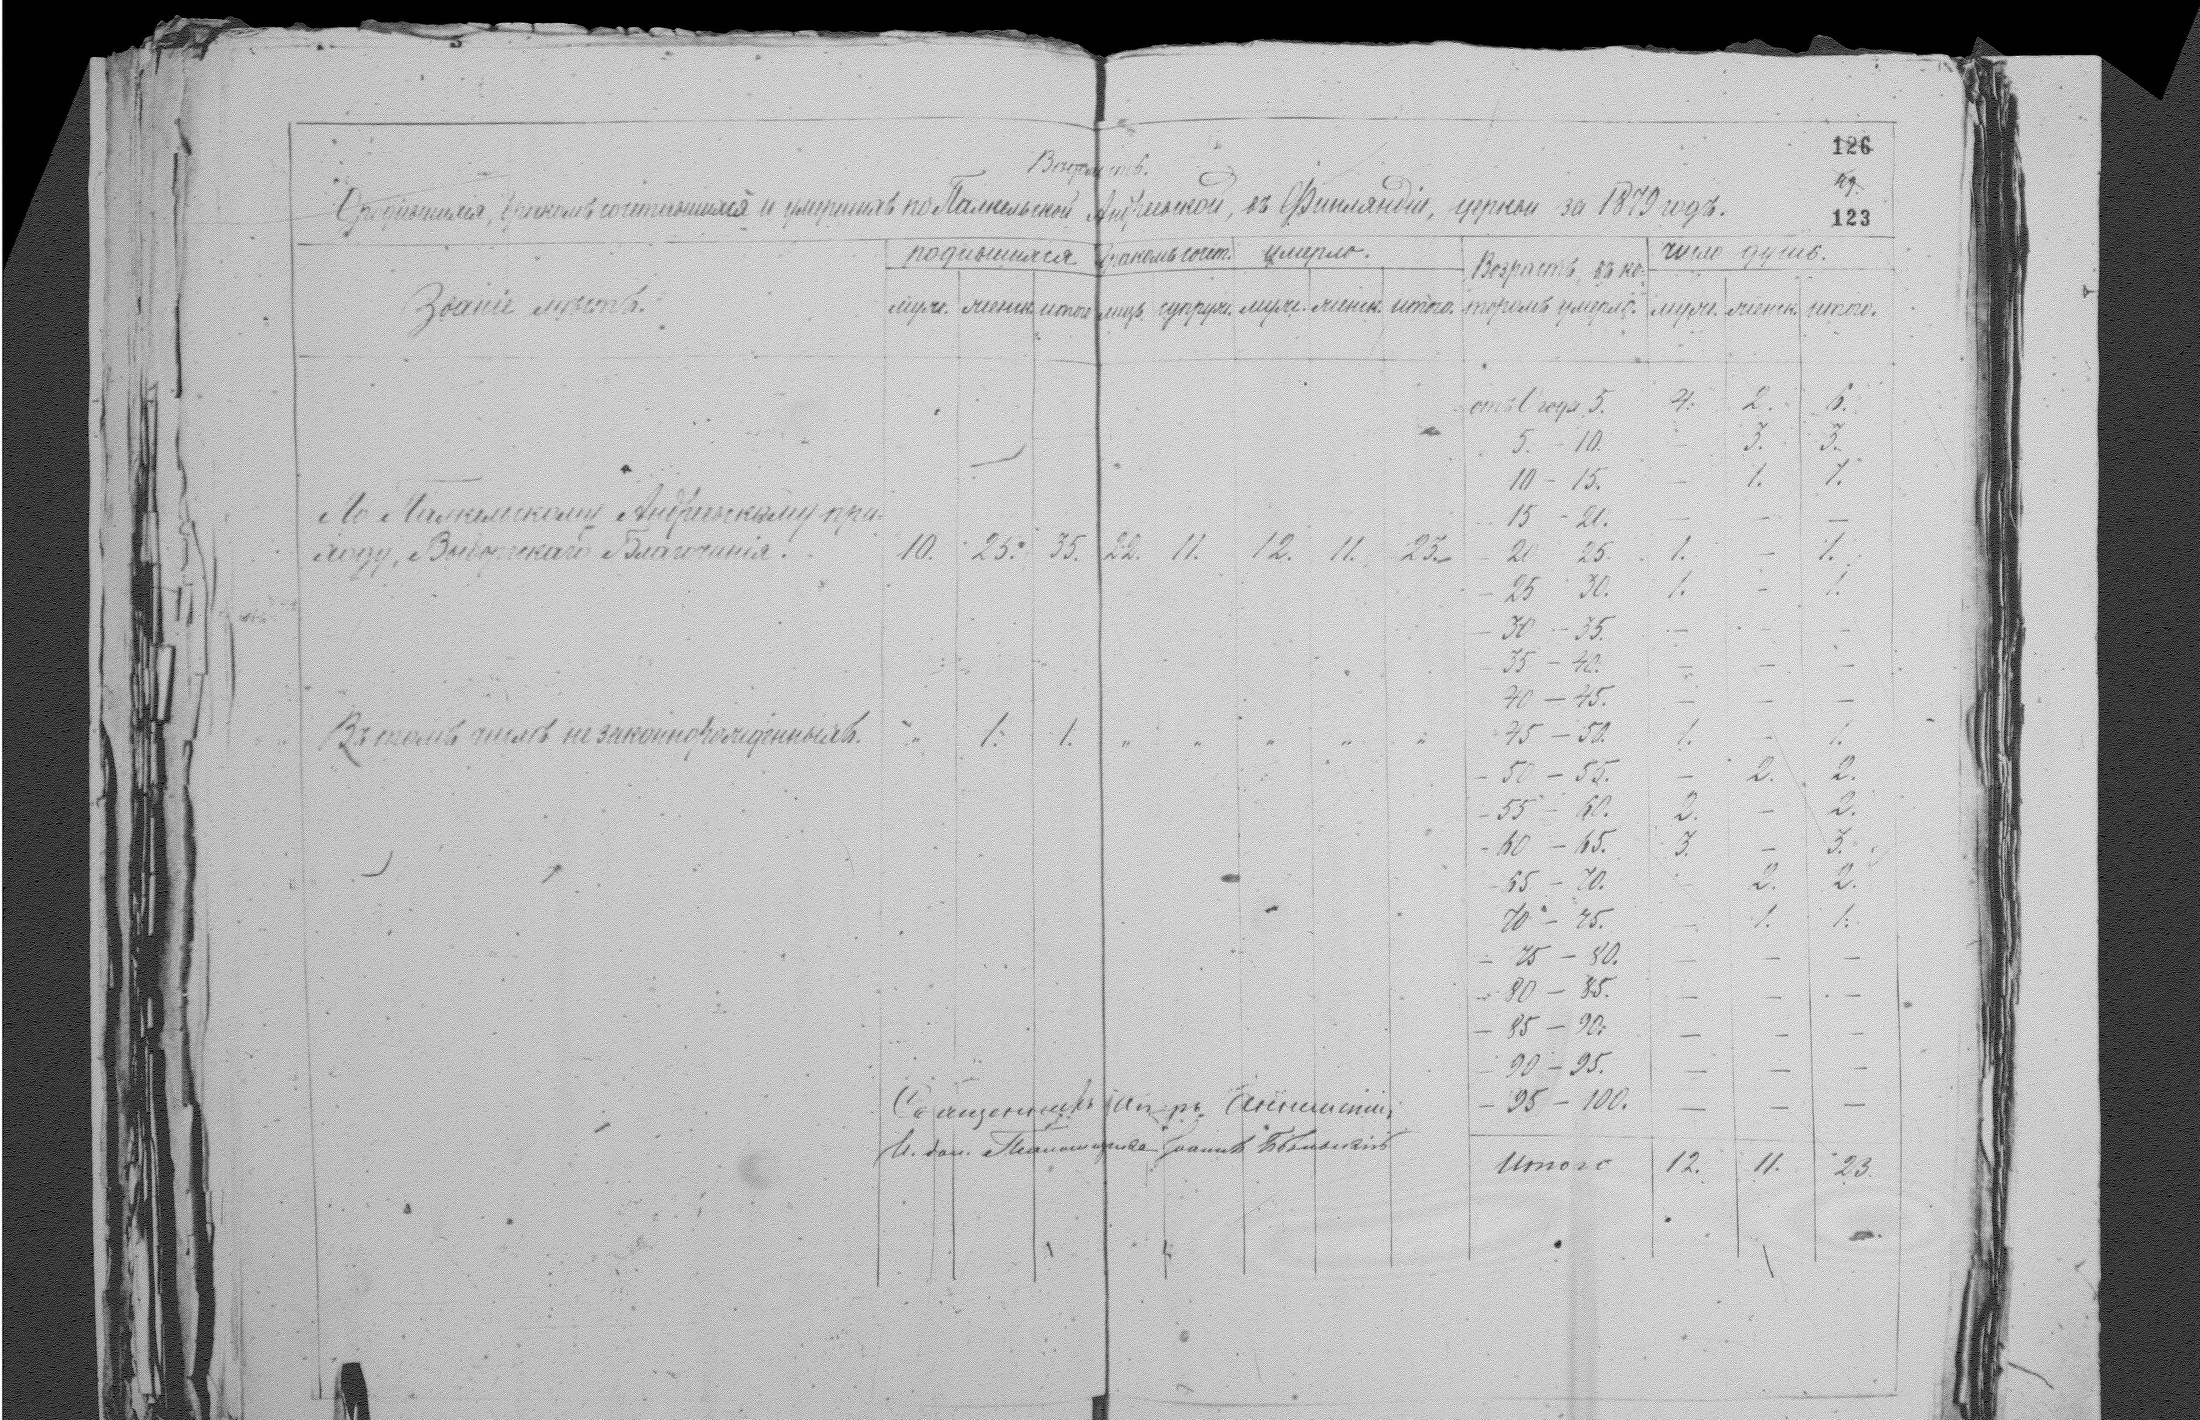 126
123
Вѣдомость.
О родившихся, бракомъ сочетавшихся и умершихъ по Палкельской Андреевской, въ Финляндіи, церкви за 1879 годъ.
родившихся бракомъ сочет. умерло. Возрастъ, въ ко- число душъ.
Званіе мѣстъ. муж. женск. итого лицъ супруж. муж. женск. итого. торомъ умерло. муж. женск. итого.
отъ 1 года 5. 4. 2. 6.
5. - 10. - 3. 3.
10 - 15. - 1. 1.
По Палкельскому Андреевскому при- 15 - 20. - - -
ходу, Выборгскаго Благочинія. 10. 25. 35. 22. 11. 12. 11. 23. - 20 25. 1. - 1.
- 25 30. 1. - 1.
- 30 - 35. - - -
- 35 - 40. - - -
40 - 45. - - -
Въ томъ числѣ незаконнорожденныхъ. " 1. 1. " " " " " 45 - 50. 1. - 1.
- 50 - 55. - 2. 2.
- 55 - 60. 2. - 2.
- 60 - 65. 3. - 3.
- 65 - 70. - 2. 2.
70 - 75. - 1. 1.
- 75 - 80. - - -
- 80 - 85. - - -
- 85 - 90. - - -
- 90 - 95. - - -
Священникъ - 95 - 100. - - -
И. дол. Псаломщика Іоаннъ
Итого 12. 11. 23.